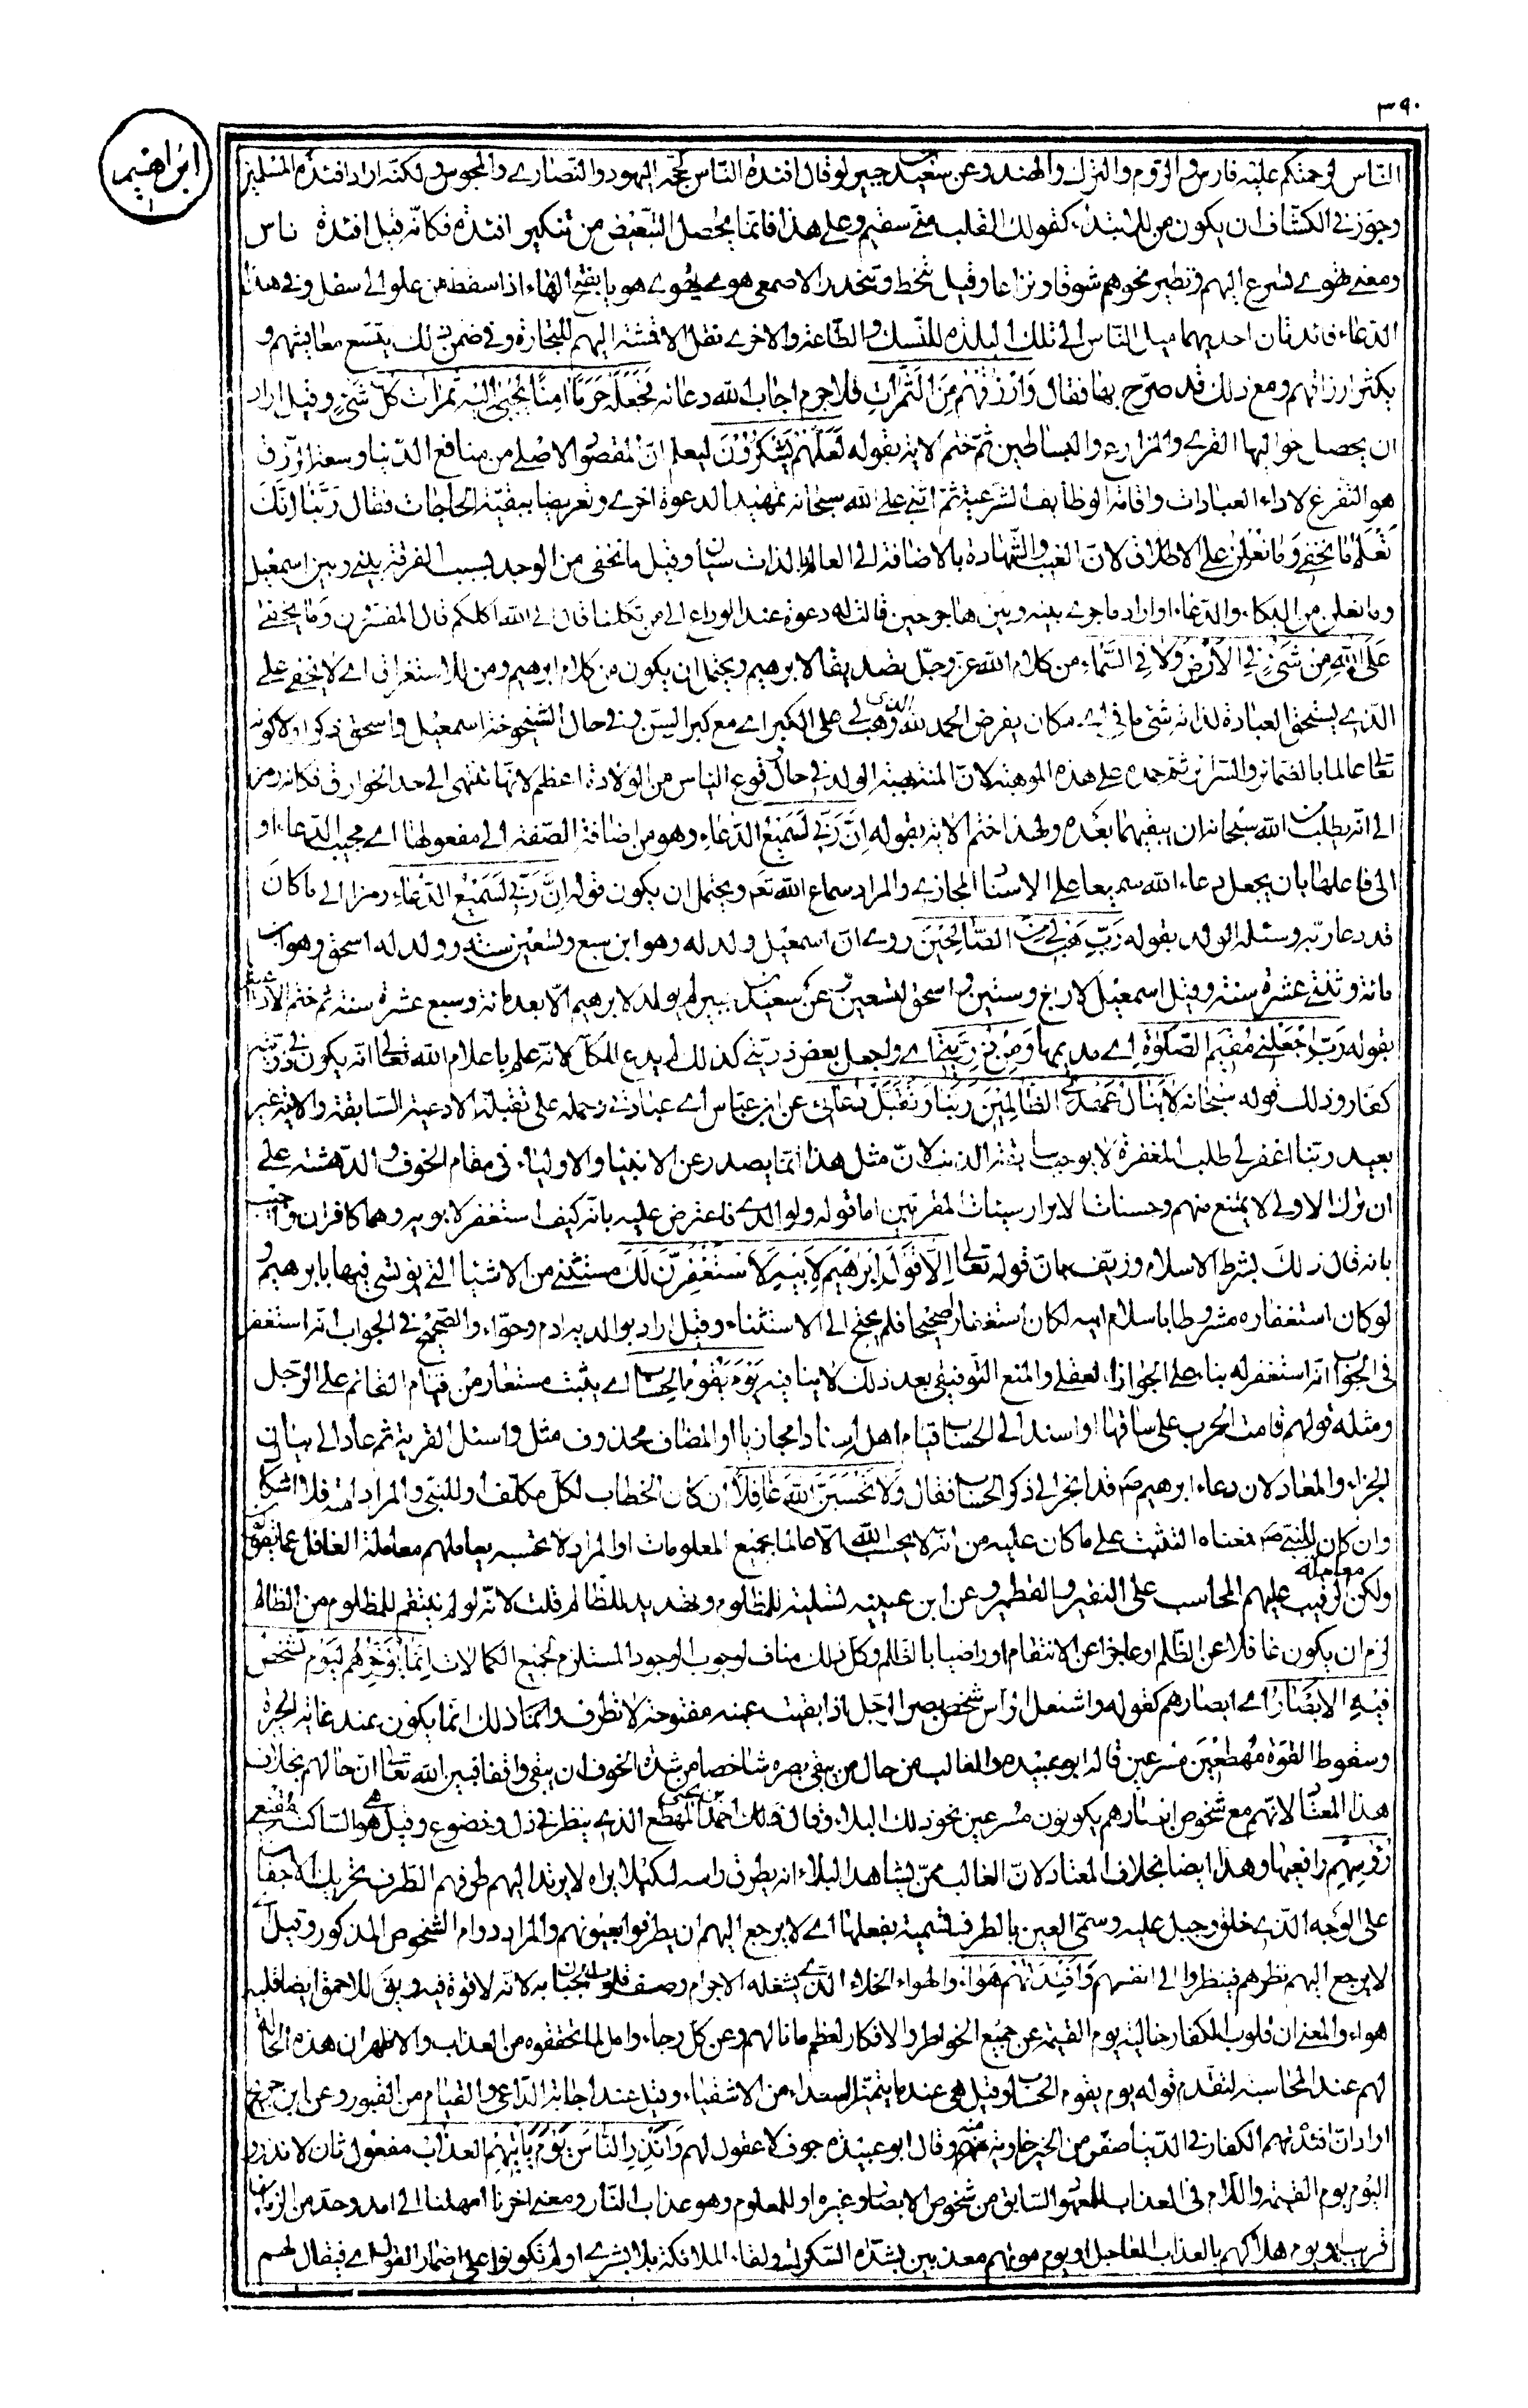 ٣٩٠
ابراهيم
الناس لزحمتكم عليه فارس والروم والترك والهند وعن سعيد بن جبير لو قال افئدة الناس لحجّه اليهود والنصارى والمجوس ولكنّه اراد افئدة المسلمين
وجوّز في الكشّاف ان يكون من للابتداء كقولك القلب منّي سقيم وعلى هذا فانّما يحصل التبعيض من تنكير افئدة فكانّه قيل افئدة ناس
ومعنى تهوي تسرع اليهم وتطير نحوهم شوقا ونزاعا وقيل تنحط وتنحدر الاصمعي هوى يهوي هويا بفتح الهاء اذا سقط من علو الى سفل وفي هذا
الدعاء فائدتان احديهما ميل الناس الى تلك البلدة للنسك والطاعة والاخرى نقل الاقمشة اليهم للتجارة وفي ضمن ذلك يتسع معايشهم و
يكثر ارزاقهم ومع ذلك قد صرّح بها فقال وَارْزُقْهُمْ مِنَ الثَّمَرَاتِ فلاجرم اجاب الله دعائه فجعله حَرَمًا آمِنًا يُجْبَى اليه ثَمَرَاتُ كُلِّ شَيْءٍ وقيل اراد
ان يحصل حواليها القرى والمزارع والبساطين ثمّ ختم الاية بقوله لَعَلَّهُمْ يَشْكُرُونَ ليعلم انّ المقصود الاصلي من منافع الدنيا وسعة الرزق
هو التفرغ لاداء العبادات واقامة الوظايف الشرعية ثمّ اثنى على الله سبحانه تمهيدا لدعوة اخرى وتعريضا ببقية الحاجات فقال رَبَّنَا اِنَّكَ
تَعْلَمُ مَا نُخْفِي وَمَا نُعْلِنُ على الاطلاق لانّ الغيب والشهادة بالاضافة الى العالم بالذات سيان وقيل ما نخفي من الوجد بسبب الفرقة بيني وبين اسمعيل
وما نعلن من البكاء والدعاء او اراد ما جرى بينه وبين هاجر حين قالت له دعوة عند الوداع الى من تكلنا قال الى الله اكلكم قال المفسّرون وَمَا يَخْفَى
عَلَى اللهِ مِنْ شَيْءٍ فِي الْاَرْضِ وَلَا فِي السَّمَاءِ من كلام الله عزّ وجلّ تصديقا لابرهيم ويحتمل ان يكون من كلام ابرهيم ومن للاستغراق اى لا يخفى على
الذي يستحق العبادة لذاته شئ ما في اىّ مكان يفرض الحمد لله الذي وهب لي على الكبر اى مع كبر السن وفي حال الشيخوخة اسمعيل واسحق ذكر اولا كونه
تعالى عالما بالضمائر والسرائر ثمّ حمده على هذه الموهبة لانّ المنّة بهبة الولد في حال وقوع الياس من الولادة اعظم لانّها تنتهي الى حد الخوارق فكانه رمز
الى انه يطلب من الله سبحانه ان يبقيهما بعده ولهذا ختم الاية بقوله اِنَّ رَبِّي لَسَمِيعُ الدُّعَاءِ وهو من اضافة الصّفة الى مفعولها اى مجيب الدعاء او
الى فاعلها بان يجعل دعاء الله سميعا على الاسناد المجازى والمراد سماع الله تعم ويحتمل ان يكون قوله اِنَّ رَبِّي لَسَمِيعُ الدُّعَاءِ رمزا الى ما كان
قد دعا ربّه وسئله الولد بقوله رَبِّ هَبْ لِي مِنَ الصَّالِحِينَ روى ان اسمعيل ولد له وهو ابن تسع وتسعين سنة وولد له اسحق وهو ابن
مائة وثنتى عشرة سنة وقيل اسمعيل لاربع وستين واسحق لتسعين وعن سعيد بن جبير لم يولد لابرهيم الّا بعد مائة وسبع عشرة سنة ثم ختم الادعية
بقوله رَبِّ اجْعَلْنِي مُقِيمَ الصَّلٰوةِ اى مديمها وَمِنْ ذُرِّيَّتِي اى واجعل بعض ذريتي كذلك لم يدع للكل لانه علم باعلام الله تعالى انّه يكون في ذريته
كفار وذلك قوله سبحانه لَا يَنَالُ عَهْدِي الظَّالِمِينَ رَبَّنَا وَتَقَبَّلْ دُعَائِي عن ابن عبّاس اى عبادتي وحمله على تقبّل الادعية السابقة والاتية غير
بعيد ربّنا اغفر لي طلب المغفرة لا يوجب سابقة الذنب لانّ مثل هذا انّما يصدر عن الانبياء والاولياء في مقام الخوف والدهشة على
ان ترك الاولى لا يمتنع منهم وحسنات الابرار سيئات المقربين اما قوله ولوالدى فاعترض عليه بانه كيف استغفر لابويه وهما كافران واجيب
بانه قال ذلك بشرط الاسلام وزيف بانّ قوله تعالى اِلَّا قَوْلَ اِبْرٰهِيمَ لِاَبِيهِ لَاَسْتَغْفِرَنَّ لَكَ مستثنى من الاشياء التي يؤتسى فيها بابرهيم و
لو كان استغفاره مشروطا باسلام ابيه لكان استغفارا صحيحا فلم يحتج الى الاستثناء وقيل اراد بوالديه ادم وحوّاء والصحيح في الجواب انه استغفر
في الجواب انّه استغفر له بناء على الجواز العقلي والمنع التوقيفي بعد ذلك لا ينافيه يَوْمَ يَقُومُ الْحِسَابُ اى يثبت مستعار من قيام القائم على الرّجل
ومثله قولهم قامت الحرب على ساقها او اسند الى الحساب قيام اهل اسنادا مجازيا او المضاف محذوف مثل واسئل القرية ثم عاد الى بيان
الجزاء والمعاد لان دعاء ابرهيم ص قد انجر الى ذكر الحساب فقال وَلَا تَحْسَبَنَّ اللهَ غَافِلًا ان كان الخطاب لكل مكلّف او للنبي والمراد امّته فلا اشكال
وان كان للنبيّ ص فمعناه التثبيت على ما كان عليه من انّه لا يحسب الله الّا عالما بجميع المعلومات او المراد لا تحسبه يعاملهم معاملة الغافل عما يعملون
ولكن معاملة الرقيب عليهم المحاسب على النقير والقطمير وعن ابن عيينة تسلية للمظلوم وتهديد للظالم قلت لانّه لو لم ينتقم للمظلوم من الظالم
لزم ان يكون غافلا عن الظّلم او عاجزا عن الانتقام او راضيا بالظلم وكلّ ذلك مناف لوجوب الوجود المستلزم لجميع الكمالات اِنَّمَا يُؤَخِّرُهُمْ لِيَوْمٍ تَشْخَصُ
فِيهِ الْاَبْصَارُ اى ابصارهم كقوله واشتعل الرأس شخص بصر الرجل اذا بقيت عينه مفتوحة لا تطرف وانّما ذلك انّما يكون عند غاية الحيرة
وسقوط القوة مُهْطِعِينَ مسرعين قاله ابو عبيدة والغالب من حال من يبقى بصره شاخصا من شدة الخوف ان يبقى واقفا فبين الله تعالى ان حالهم بخلاف
هذا المعتاد لانّهم مع شخوص ابصارهم يكونون مسرعين نحو ذلك البلاء وقال احمد بن يحيى المهطع الذي ينظر في ذل وخضوع وقيل هو الساكت مُقْنِعِي
رُؤُسِهِمْ رافعيها وهذا ايضا بخلاف المعتاد لانّ الغالب ممّن يشاهد البلاء انه يطرق راسه لكيلا يراه لا يرتد اليهم طرفهم الطّرف تحريك الاجفان
على الوجه الذي خلق وجبل عليه وسمّى العين بالطرف تسمية بفعلها اى لا يرجع اليهم ان يطرفوا بعيونهم والمراد دوام الشخوص المذكور وقيل اى
لا يرجع اليهم نظرهم فينظروا الى انفسهم وَاَفْئِدَتُهُمْ هَوَاءٌ والهواء الخلاء الذي لم يشغله الاجرام وصف قلوب الجبان به لانه لا قوة فيه ويقال للاحمق ايضا قلبه
هواء والمعنى ان قلوب الكفار خالية يوم القيمة عن جميع الخواطر والافكار لعظم ما نالهم وعن كل رجاء وامل لما تحققوه من العذاب والاظهر ان هذه الحالة
لهم عند المحاسبة لتقدم قوله يوم يقوم الحساب وقيل هي عند ما يتميّز السعداء من الاشقياء وقيل عند اجابة الداعي والقيام من القبور وعن ابن جريج
اراد ان افئدتهم الكفار في الدنيا صفر من الخير خاوية منه وقال ابو عبيدة جوف لا عقول لهم وَاَنْذِرِ النَّاسَ يَوْمَ يَأْتِيهِمُ الْعَذَابُ مفعول ثان لانذر و
اليوم يوم القيمة واللام في العذاب للمعهود السابق من شخوص الابصار وغيره او للمعلوم وهو عذاب النار ومعنى اخرنا امهلنا الى امد وحد من الزمان
قريب او يوم هلاكهم بالعذاب العاجل او يوم موتهم معذبين بشدة السكرات ولقاء الملائكة بلا بشرى او لم تكونوا على اضمار القول اى فيقال لهم